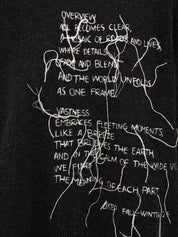 OVERVIEW
ALL BECOMES CLEAR
A MOSAIC OF ROADS AND LIVES
WHERE DETAILS
FADE AND BLEND
AND THE WORLD UNFOLDS
AS ONE FRAME
VASTNESS
EMBRACES FLEETING MOMENTS
LIKE A BREEZE
THAT BRUSHES THE EARTH
AND IN THE CALM OF THE WIDE VIEW
WE FIND
THE MEANING OF EACH PART
FALL-WINTER